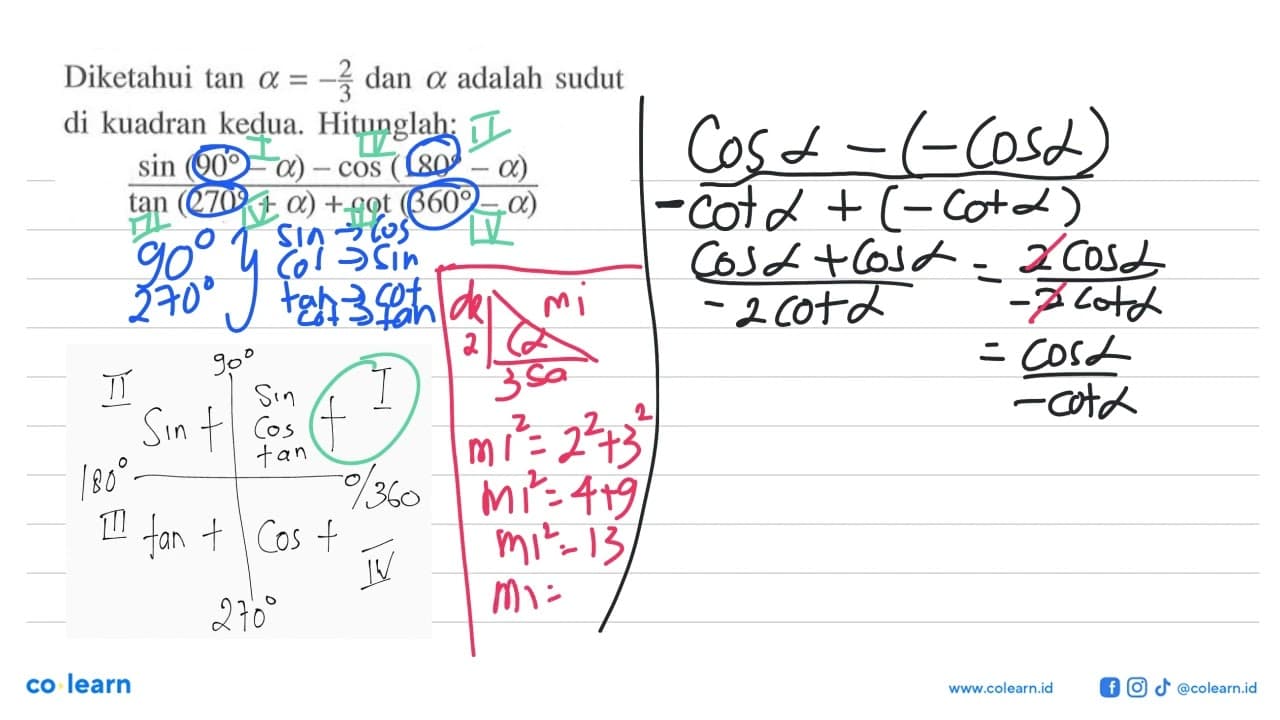 Diketahui tan α = -2/3 dan α adalah sudut
di kuadran kedua. Hitunglah:
I IV II
sin (90° - α) - cos (180° - α)
tan (270° + α) + cot (360° - α)
III IV II IV
90° } sin → cos
270° cos → sin
tan → cot
cot → tan
90°
II I
Sin + Sin
Cos +
tan
180° 0/360
III tan + Cos +
IV
270°
de mi
2 α
3 sa
mi² = 2² + 3²
mi² = 4+9
mi² = 13
mi =
Cos α - (-Cos α)
-cot α + (-cot α)
Cos α + Cos α = 2 Cos α
-2 cot α -2 cot α
= cos α
-cot α
co learn
www.colearn.id
@colearn.id